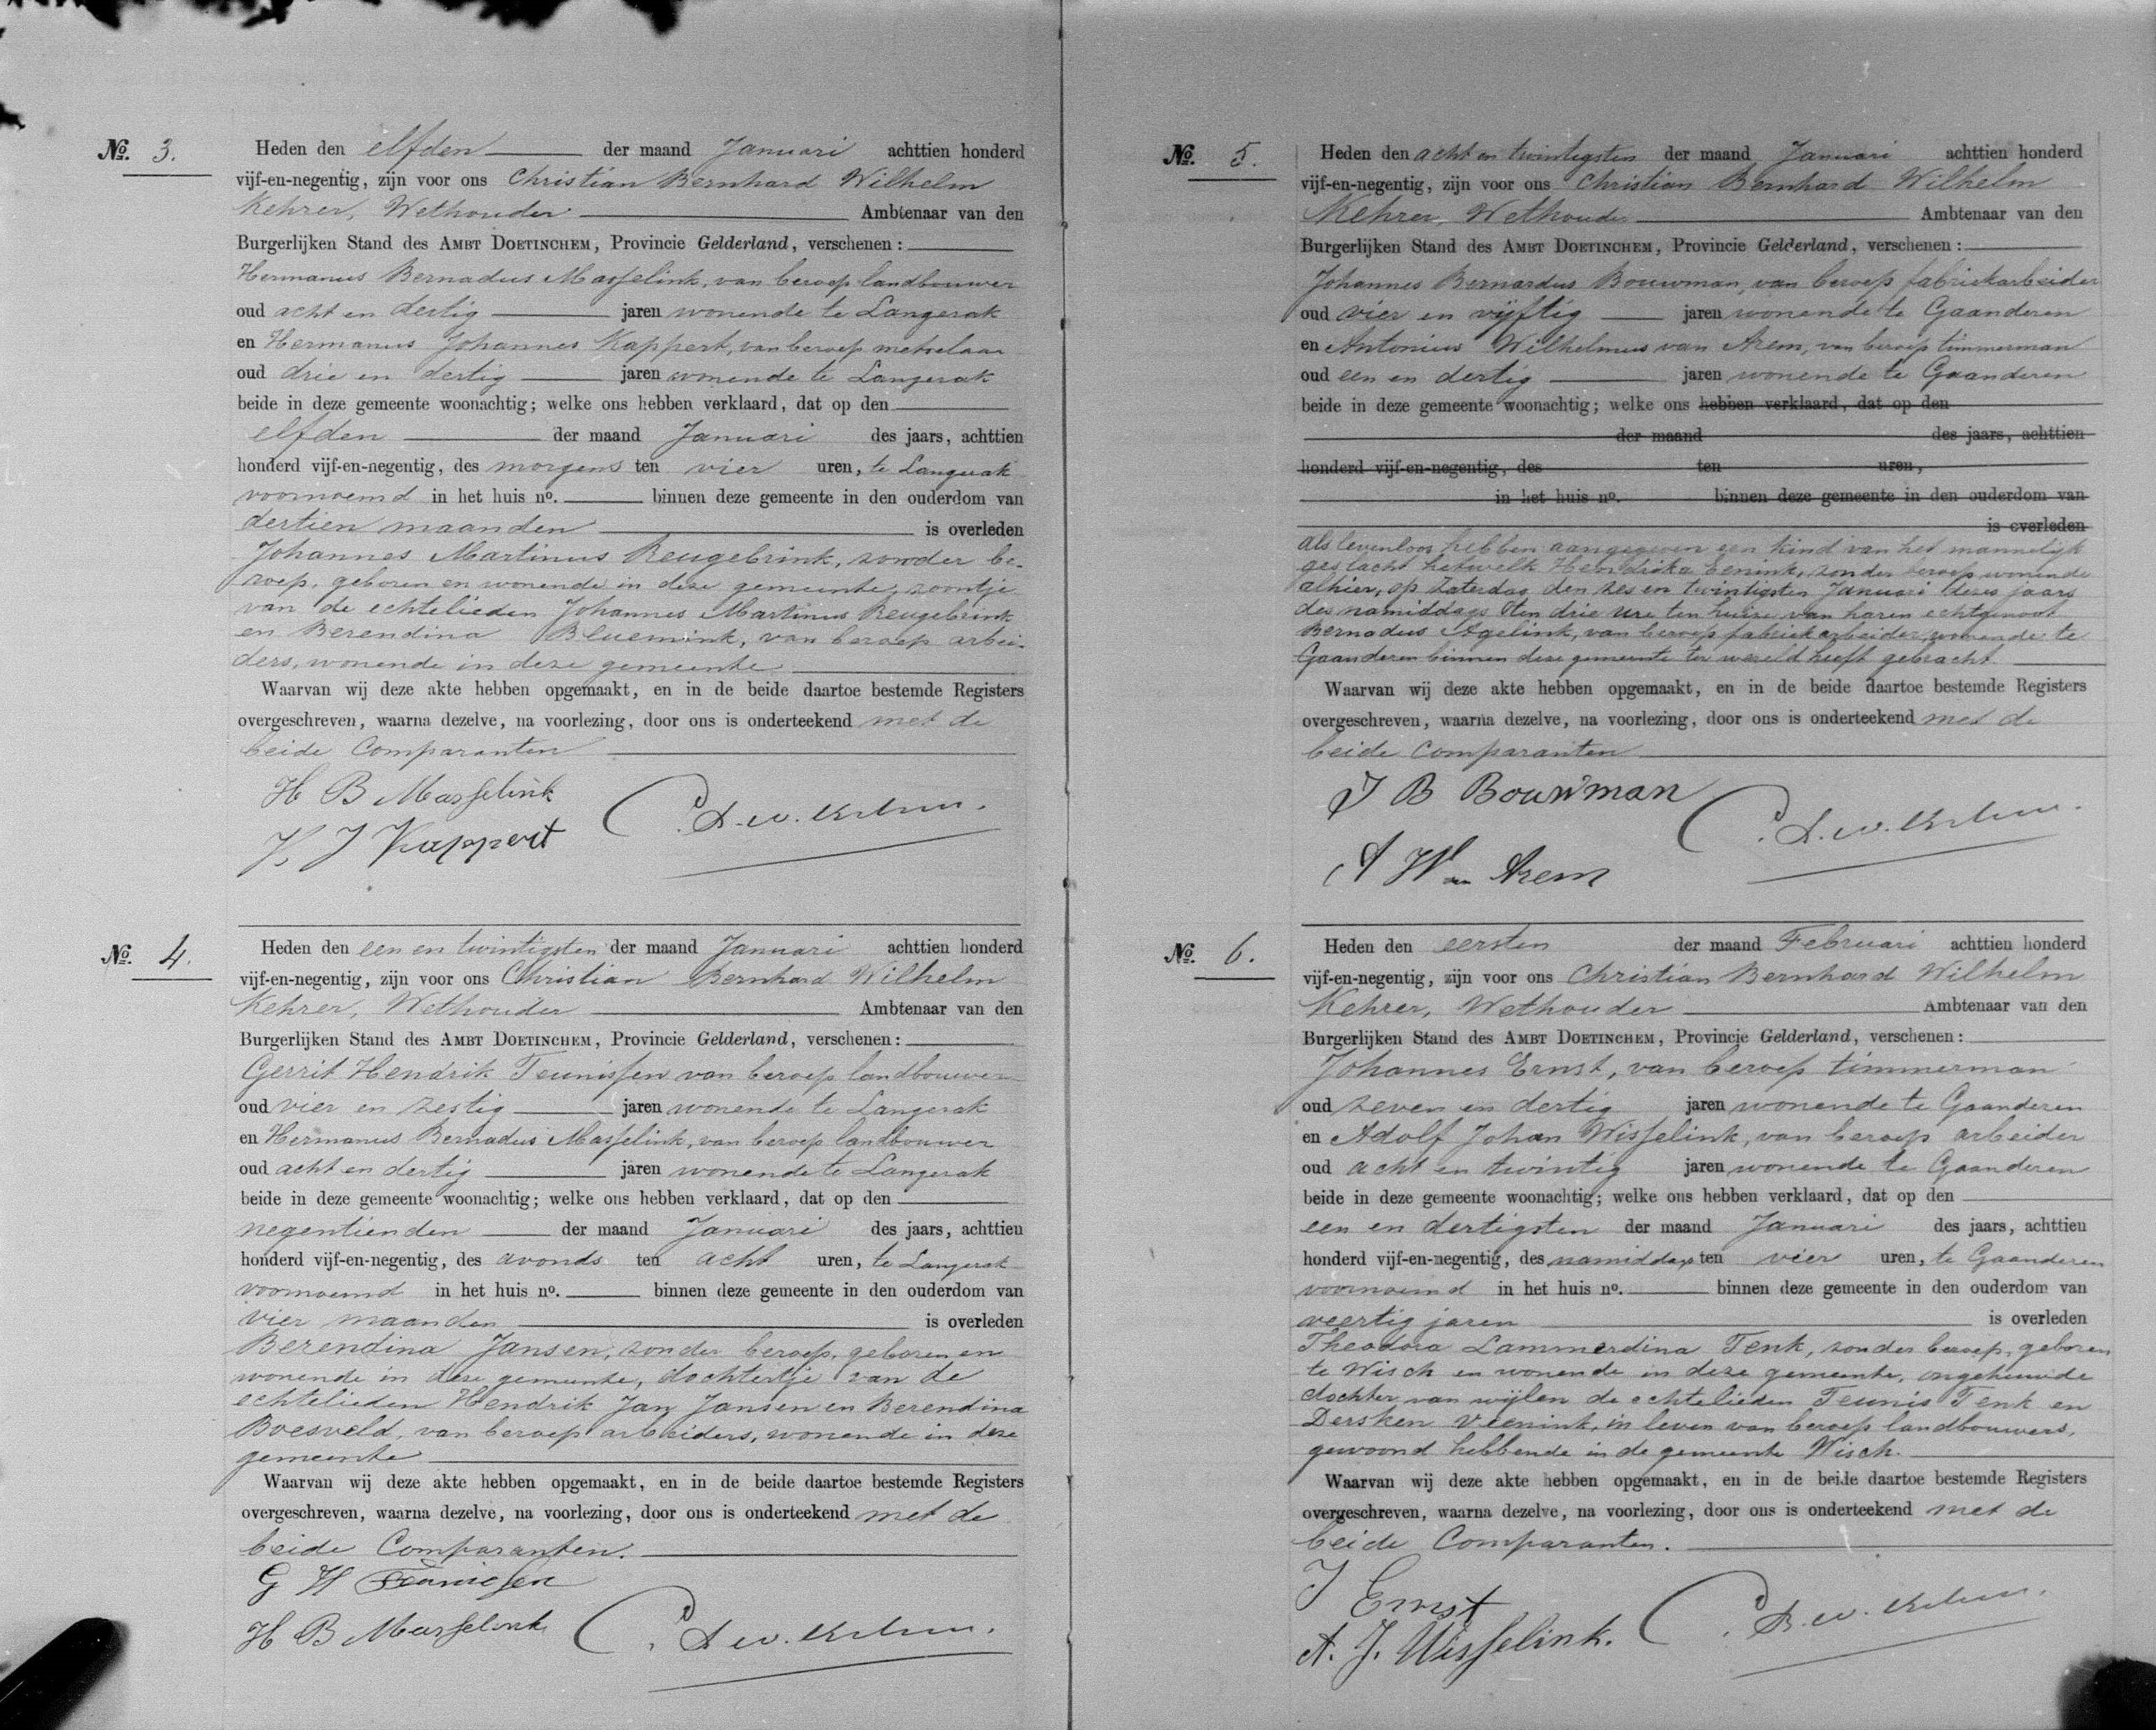 No. 3.
Heden den elfden der maand Januari achttien honderd
vijf-en-negentig, zijn voor ons Christian Bernhard Wilhelm
Kehrer, Wethouder Ambtenaar van den
Burgerlijken Stand des AMBT DOETINCHEM, Provincie Gelderland, verschenen:
Hermanus Bernadus Masselink, van beroep landbouwer
oud acht en dertig jaren wonende te Langerak
en Hermanus Johannes Kappert, van beroep metselaar
oud drie en dertig jaren wonende te Langerak
beide in deze gemeente woonachtig; welke ons hebben verklaard, dat op den
elfden der maand Januari des jaars, achttien
honderd vijf-en-negentig, des morgens ten vier uren, te Langerak
voornoemd in het huis no. binnen deze gemeente in den ouderdom van
dertien maanden is overleden
Johannes Martinus Reugebrink, zonder be-
roep, geboren en wonende in deze gemeente, zoontje
van de echtelieden Johannes Martinus Reugebrink
en Berendina Bluemink, van beroep arbei-
ders, wonende in deze gemeente
Waarvan wij deze akte hebben opgemaakt, en in de beide daartoe bestemde Registers
overgeschreven, waarna dezelve, na voorlezing, door ons is onderteekend met de
beide Comparanten
H B Masselink
H J Kappert
C. B. W. Kehrer.
No. 4.
Heden den een en twintigsten der maand Januari achttien honderd
vijf-en-negentig, zijn voor ons Christian Bernhard Wilhelm
Kehrer, Wethouder Ambtenaar van den
Burgerlijken Stand des AMBT DOETINCHEM, Provincie Gelderland, verschenen:
Gerrit Hendrik Teunissen van beroep landbouwer
oud vier en zestig jaren wonende te Langerak
en Hermanus Bernadus Masselink, van beroep landbouwer
oud acht en dertig jaren wonende te Langerak
beide in deze gemeente woonachtig; welke ons hebben verklaard, dat op den
negentienden der maand Januari des jaars, achttien
honderd vijf-en-negentig, des avonds ten acht uren, te Langerak
voornoemd in het huis no. binnen deze gemeente in den ouderdom van
vier maanden is overleden
Berendina Jansen, zonder beroep, geboren en
wonende in deze gemeente, dochtertje van de
echtelieden Hendrik Jan Jansen en Berendina
Boesveld, van beroep arbeiders, wonende in deze
gemeente
Waarvan wij deze akte hebben opgemaakt, en in de beide daartoe bestemde Registers
overgeschreven, waarna dezelve, na voorlezing, door ons is onderteekend met de
beide Comparanten.
G H Teunissen
H B Masselink
C. B. W. Kehrer.
No. 5.
Heden den acht en twintigsten der maand Januari achttien honderd
vijf-en-negentig, zijn voor ons Christian Bernhard Wilhelm
Kehrer, Wethouder Ambtenaar van den
Burgerlijken Stand des AMBT DOETINCHEM, Provincie Gelderland, verschenen:
Johannes Bernardus Bouwman, van beroep fabriekarbeider
oud vier en vijftig jaren wonende te Gaanderen
en Antonius Wilhelmus van Arem, van beroep timmerman
oud een en dertig jaren wonende te Gaanderen
beide in deze gemeente woonachtig; welke ons hebben verklaard, dat op den
der maand des jaars, achttien
honderd vijf-en-negentig, des ten uren,
in het huis no. binnen deze gemeente in den ouderdom van
is overleden
als levenloos hebben aangegeven een kind van het mannelijk
geslacht hetwelk Hendrika Eenink, zonder beroep wonende
alhier, op Zaterdag den zes en twintigsten Januari dezes jaars
des namiddags ten drie ure ten huize van haren echtgenoot
Bernadus Agelink, van beroep fabriekarbeider, wonende te
Gaanderen binnen deze gemeente ter wereld heeft gebracht.
Waarvan wij deze akte hebben opgemaakt, en in de beide daartoe bestemde Registers
overgeschreven, waarna dezelve, na voorlezing, door ons is onderteekend met de
beide comparanten
J B Bouwman
A W van Arem
C. B. W. Kehrer.
No. 6.
Heden den eersten der maand Februari achttien honderd
vijf-en-negentig, zijn voor ons Christian Bernhard Wilhelm
Kehrer, Wethouder Ambtenaar van den
Burgerlijken Stand des AMBT DOETINCHEM, Provincie Gelderland, verschenen:
Johannes Ernst, van beroep timmerman
oud zeven en dertig jaren wonende te Gaanderen
en Adolf Johan Wisselink, van beroep arbeider
oud acht en twintig jaren wonende te Gaanderen
beide in deze gemeente woonachtig; welke ons hebben verklaard, dat op den
een en dertigsten der maand Januari des jaars, achttien
honderd vijf-en-negentig, des namiddags ten vier uren, te Gaanderen
voornoemd in het huis no. binnen deze gemeente in den ouderdom van
veertig jaren is overleden
Theodora Lammerdina Tenk, zonder beroep, geboren
te Wisch en wonende in deze gemeente, ongehuwde
dochter van wijlen de echtelieden Teunis Tenk en
Dersken Veenink, in leven van beroep landbouwers,
gewoond hebbende in de gemeente Wisch.
Waarvan wij deze akte hebben opgemaakt, en in de beide daartoe bestemde Registers
overgeschreven, waarna dezelve, na voorlezing, door ons is onderteekend met de
beide Comparanten.
J Ernst
A. J. Wisselink.
C. B. W. Kehrer.